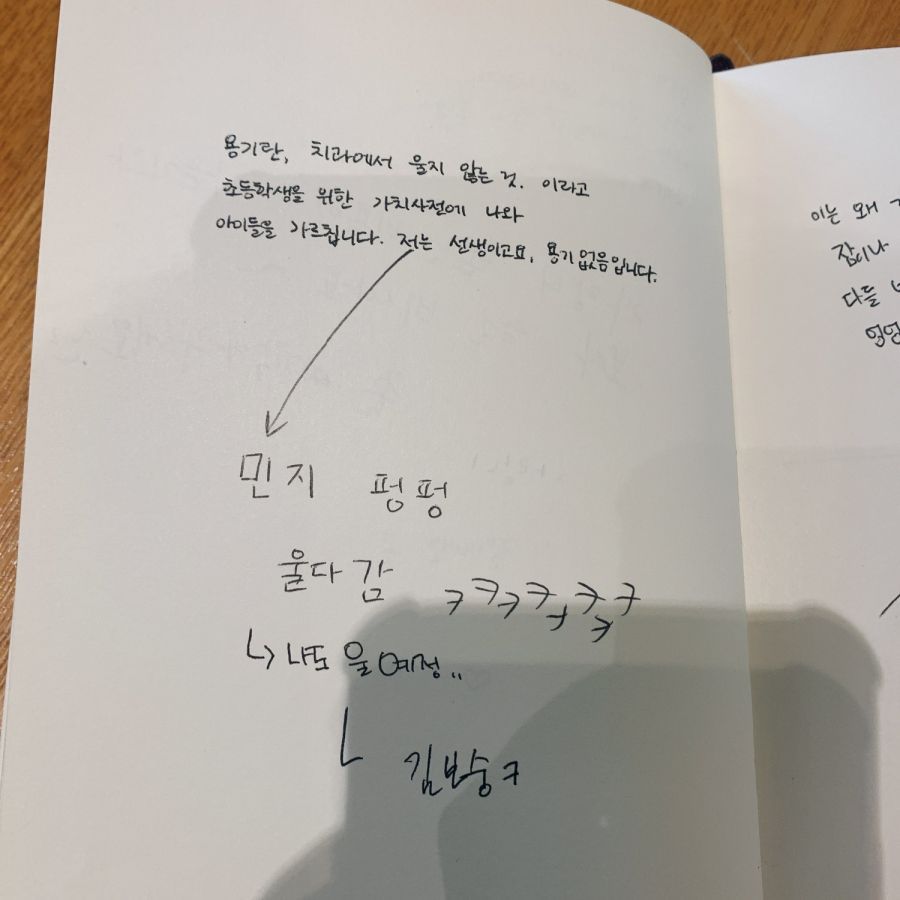 용기란, 치과에서 울지 않는 것. 이라고
초등학생을 위한 가치사전에 나와
아이들을 가르칩니다. 저는 선생이고요, 용기 없음입니다.
민지 펑펑
울다 감 ㅋㅋㅋㅋㅋㅋㅋㅋ
↳ 나도 울 예정..
김보숭ㅋ
이는 왜
잠이나
다들
엉엉